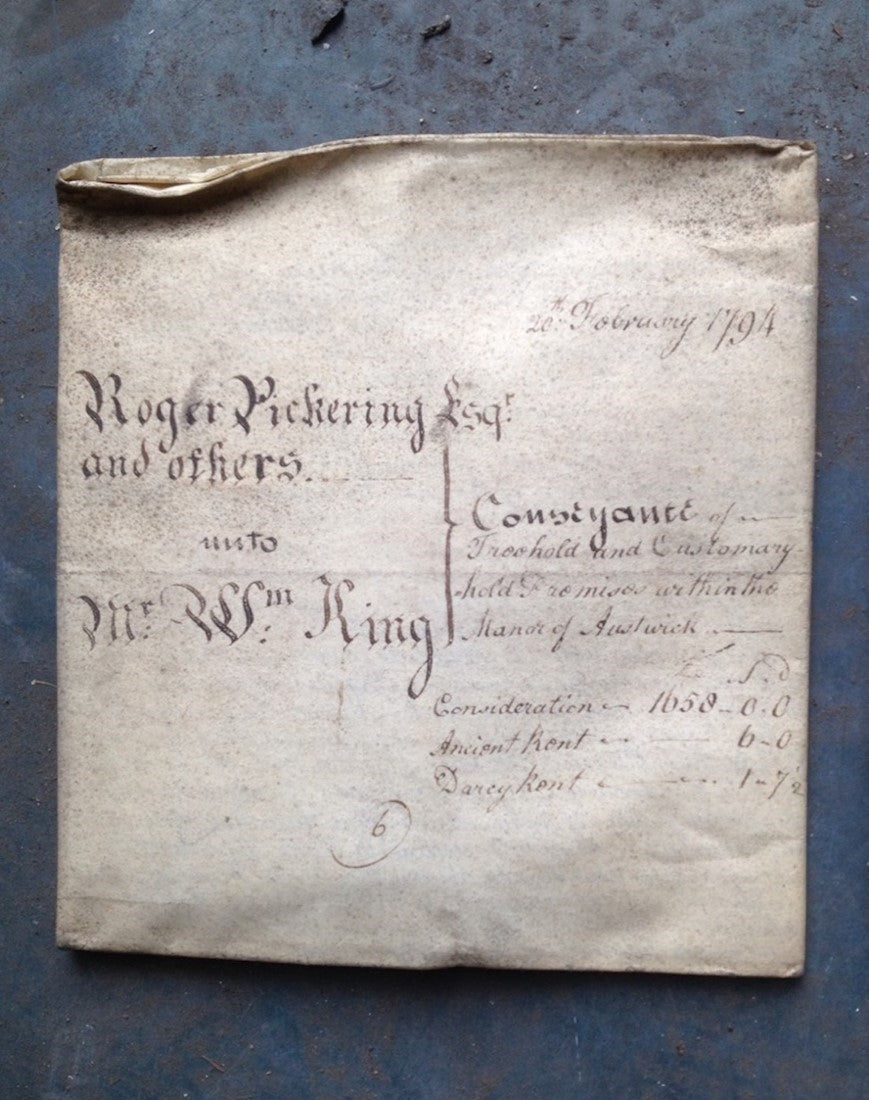 20th February 1794
Roger Pickering Esqr.
and others
unto
Mr. Wm. King
Conveyance of
Freehold and Customary-
hold Premises within the
Manor of Austwick
£ S D
Consideration 1658-0.0
Ancient Rent 6-0
Darcy Rent 1-7½
6